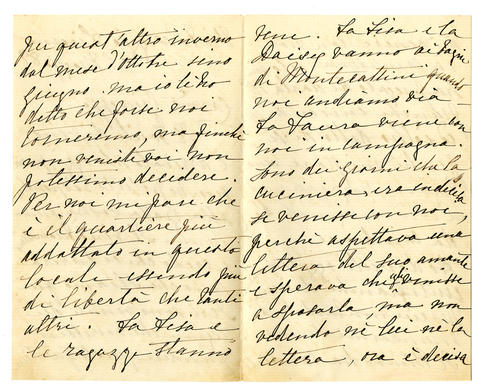 per quest'altro inverno
dal mese d'Ottobre sino
giugno, ma io le ho
ditto che forse noi
torneremo, ma finchè
non veniste voi non
potessimo decidere.
Per noi mi pare che
è il quartiere più
addattato in questo
locale essendo più
di libertà che tanti
altri. La Lisa e
le ragazze stanno
bene. La Lisa e la
Daisey vanno ai bagni
di Montecattini quando
noi andiamo via
La Laura viene con
noi in campagna.
Sono dei giorni che la
cuciniera era indecisa
se venisse con noi,
perchè aspettava una
lettera del suo amante
e sperava che venisse
a sposarla, ma non
vedendo nè lui nè la
lettera, ora è decisa